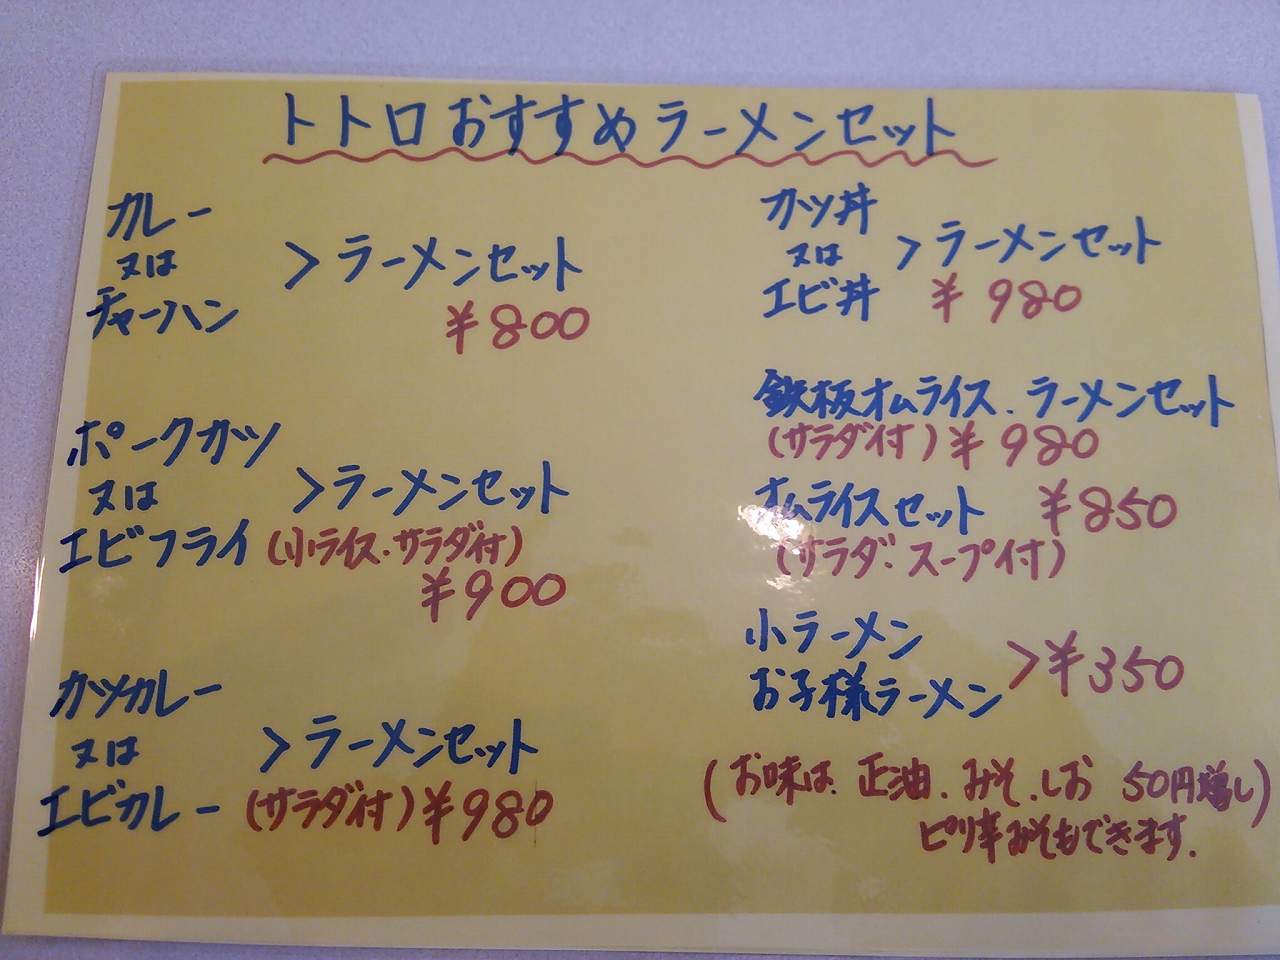 トトロおすすめラーメンセット
カレー
又は
チャーハン
>ラーメンセット
¥800
ポークカツ
又は
エビフライ
>ラーメンセット
(小ライス・サラダ付)
¥900
カツカレー
又は
エビカレー
>ラーメンセット
(サラダ付)¥980
カツ丼
又は
エビ丼
>ラーメンセット
¥980
鉄板オムライス.ラーメンセット
(サラダ付)¥980
オムライスセット ¥850
(サラダ・スープ付)
小ラーメン
お子様ラーメン
>¥350
(お味は.正油.みそ.しお 50円増し)
ピリ辛みそもできます.